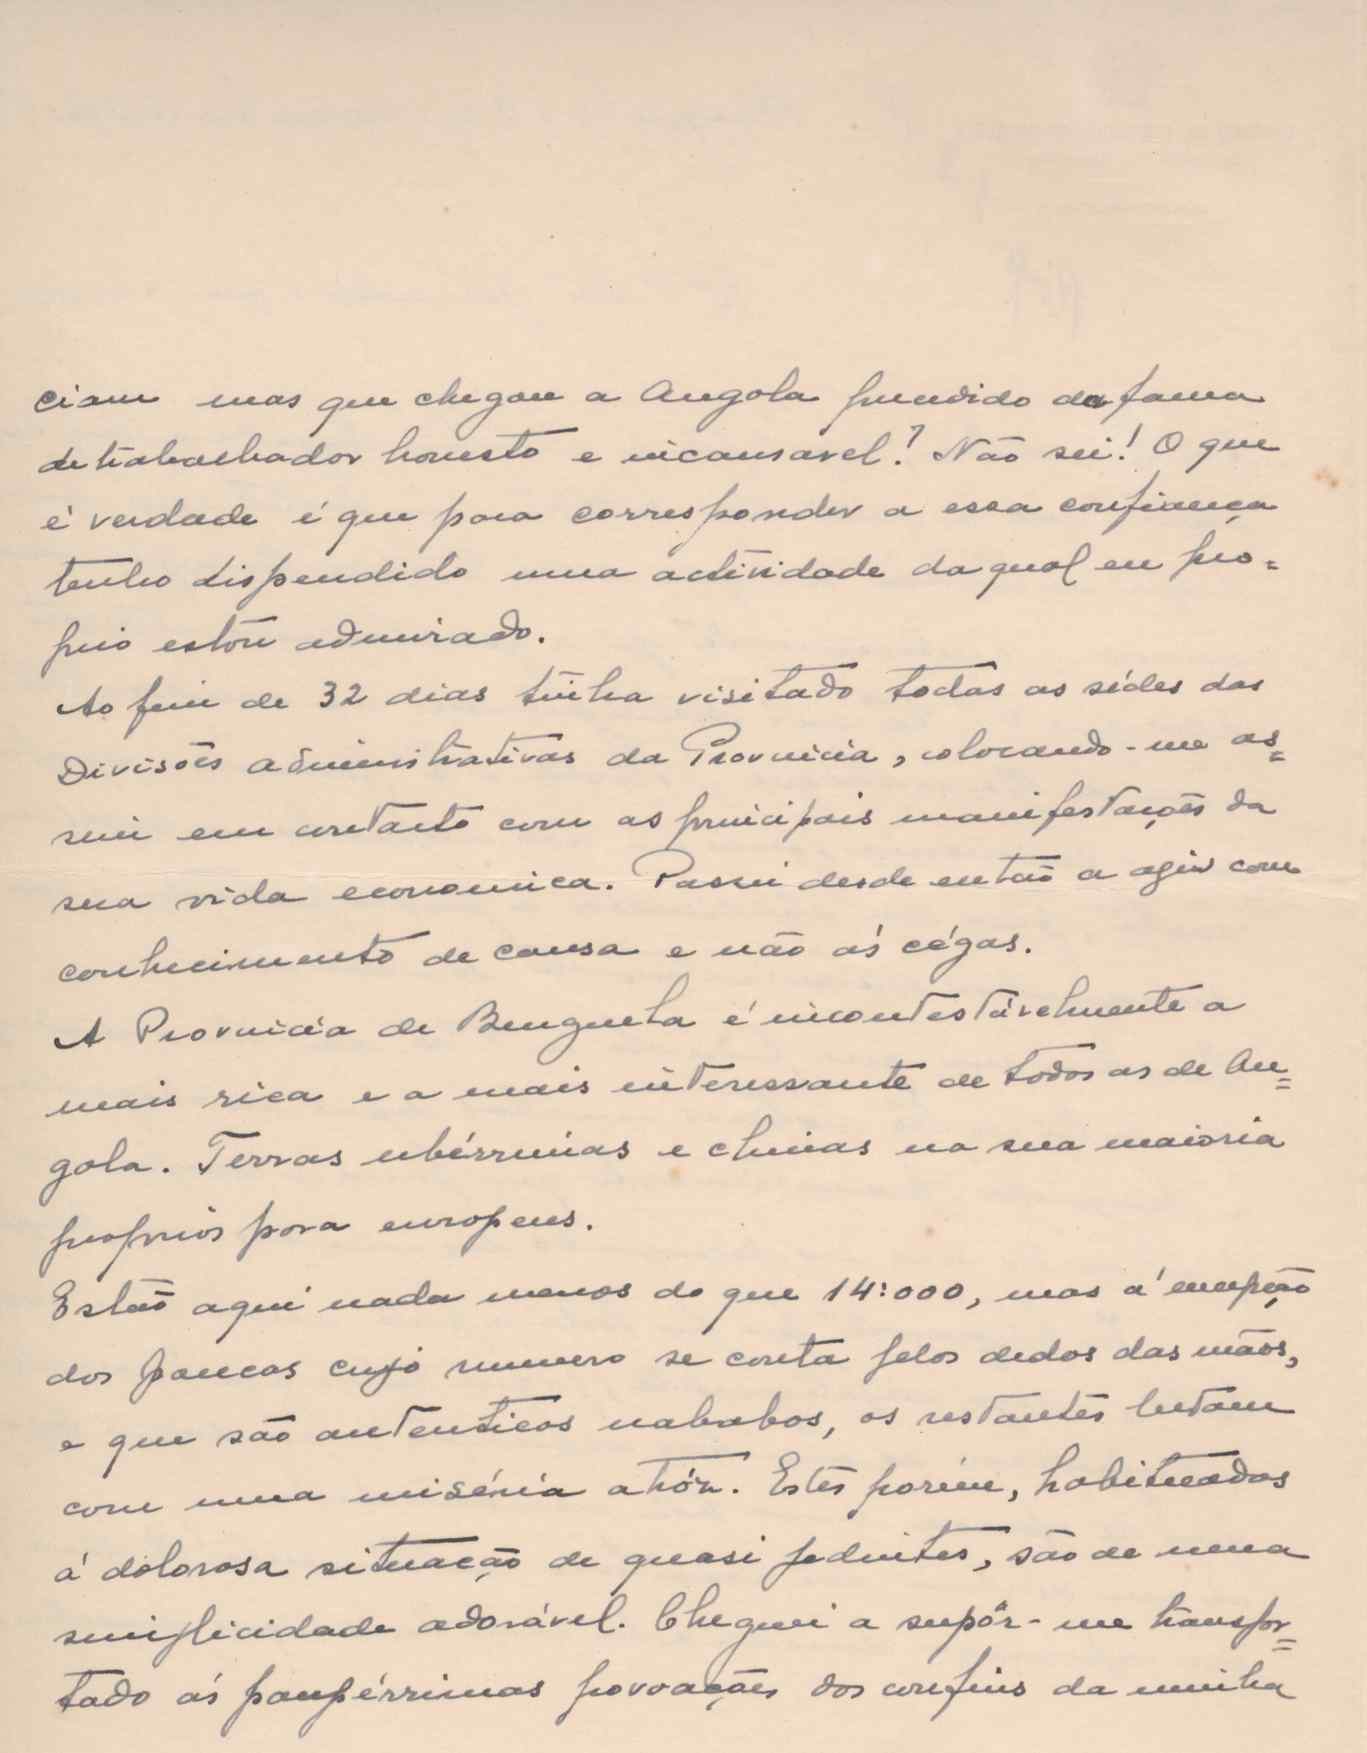 ciam mas que chegou a Angola precedido da fama
de trabalhador honesto e incansavel? Não sei! O que
é verdade é que para corresponder a essa confiança
tenho dispendido uma actividade da qual eu pro=
prio estou admirado.
Ao fim de 32 dias tinha visitado todas as sédes das
Divisões administrativas da Provincia, colocando-me as=
sim em contacto com as principais manifestações da
sua vida economica. Passei desde então a agir com
conhecimento de causa e não ás cégas.
A Provincia de Benguela é incontestávelmente a
mais rica e a mais interessante de todas as de An=
gola. Terras ubérrimas e climas na sua maioria
proprios para europeus.
Estão aqui nada menos do que 14:000, mas á excepção
dos poucos cujo numero se conta pelos dedos das mãos,
e que são autenticos nababos, os restantes lutam
com uma miséria atróz. Estes porém, habituados
á dolorosa situação de quasi pedintes, são de uma
simplicidade adorável. Cheguei a supôr-me transpor=
tado ás paupérrimas povoações dos confins da minha